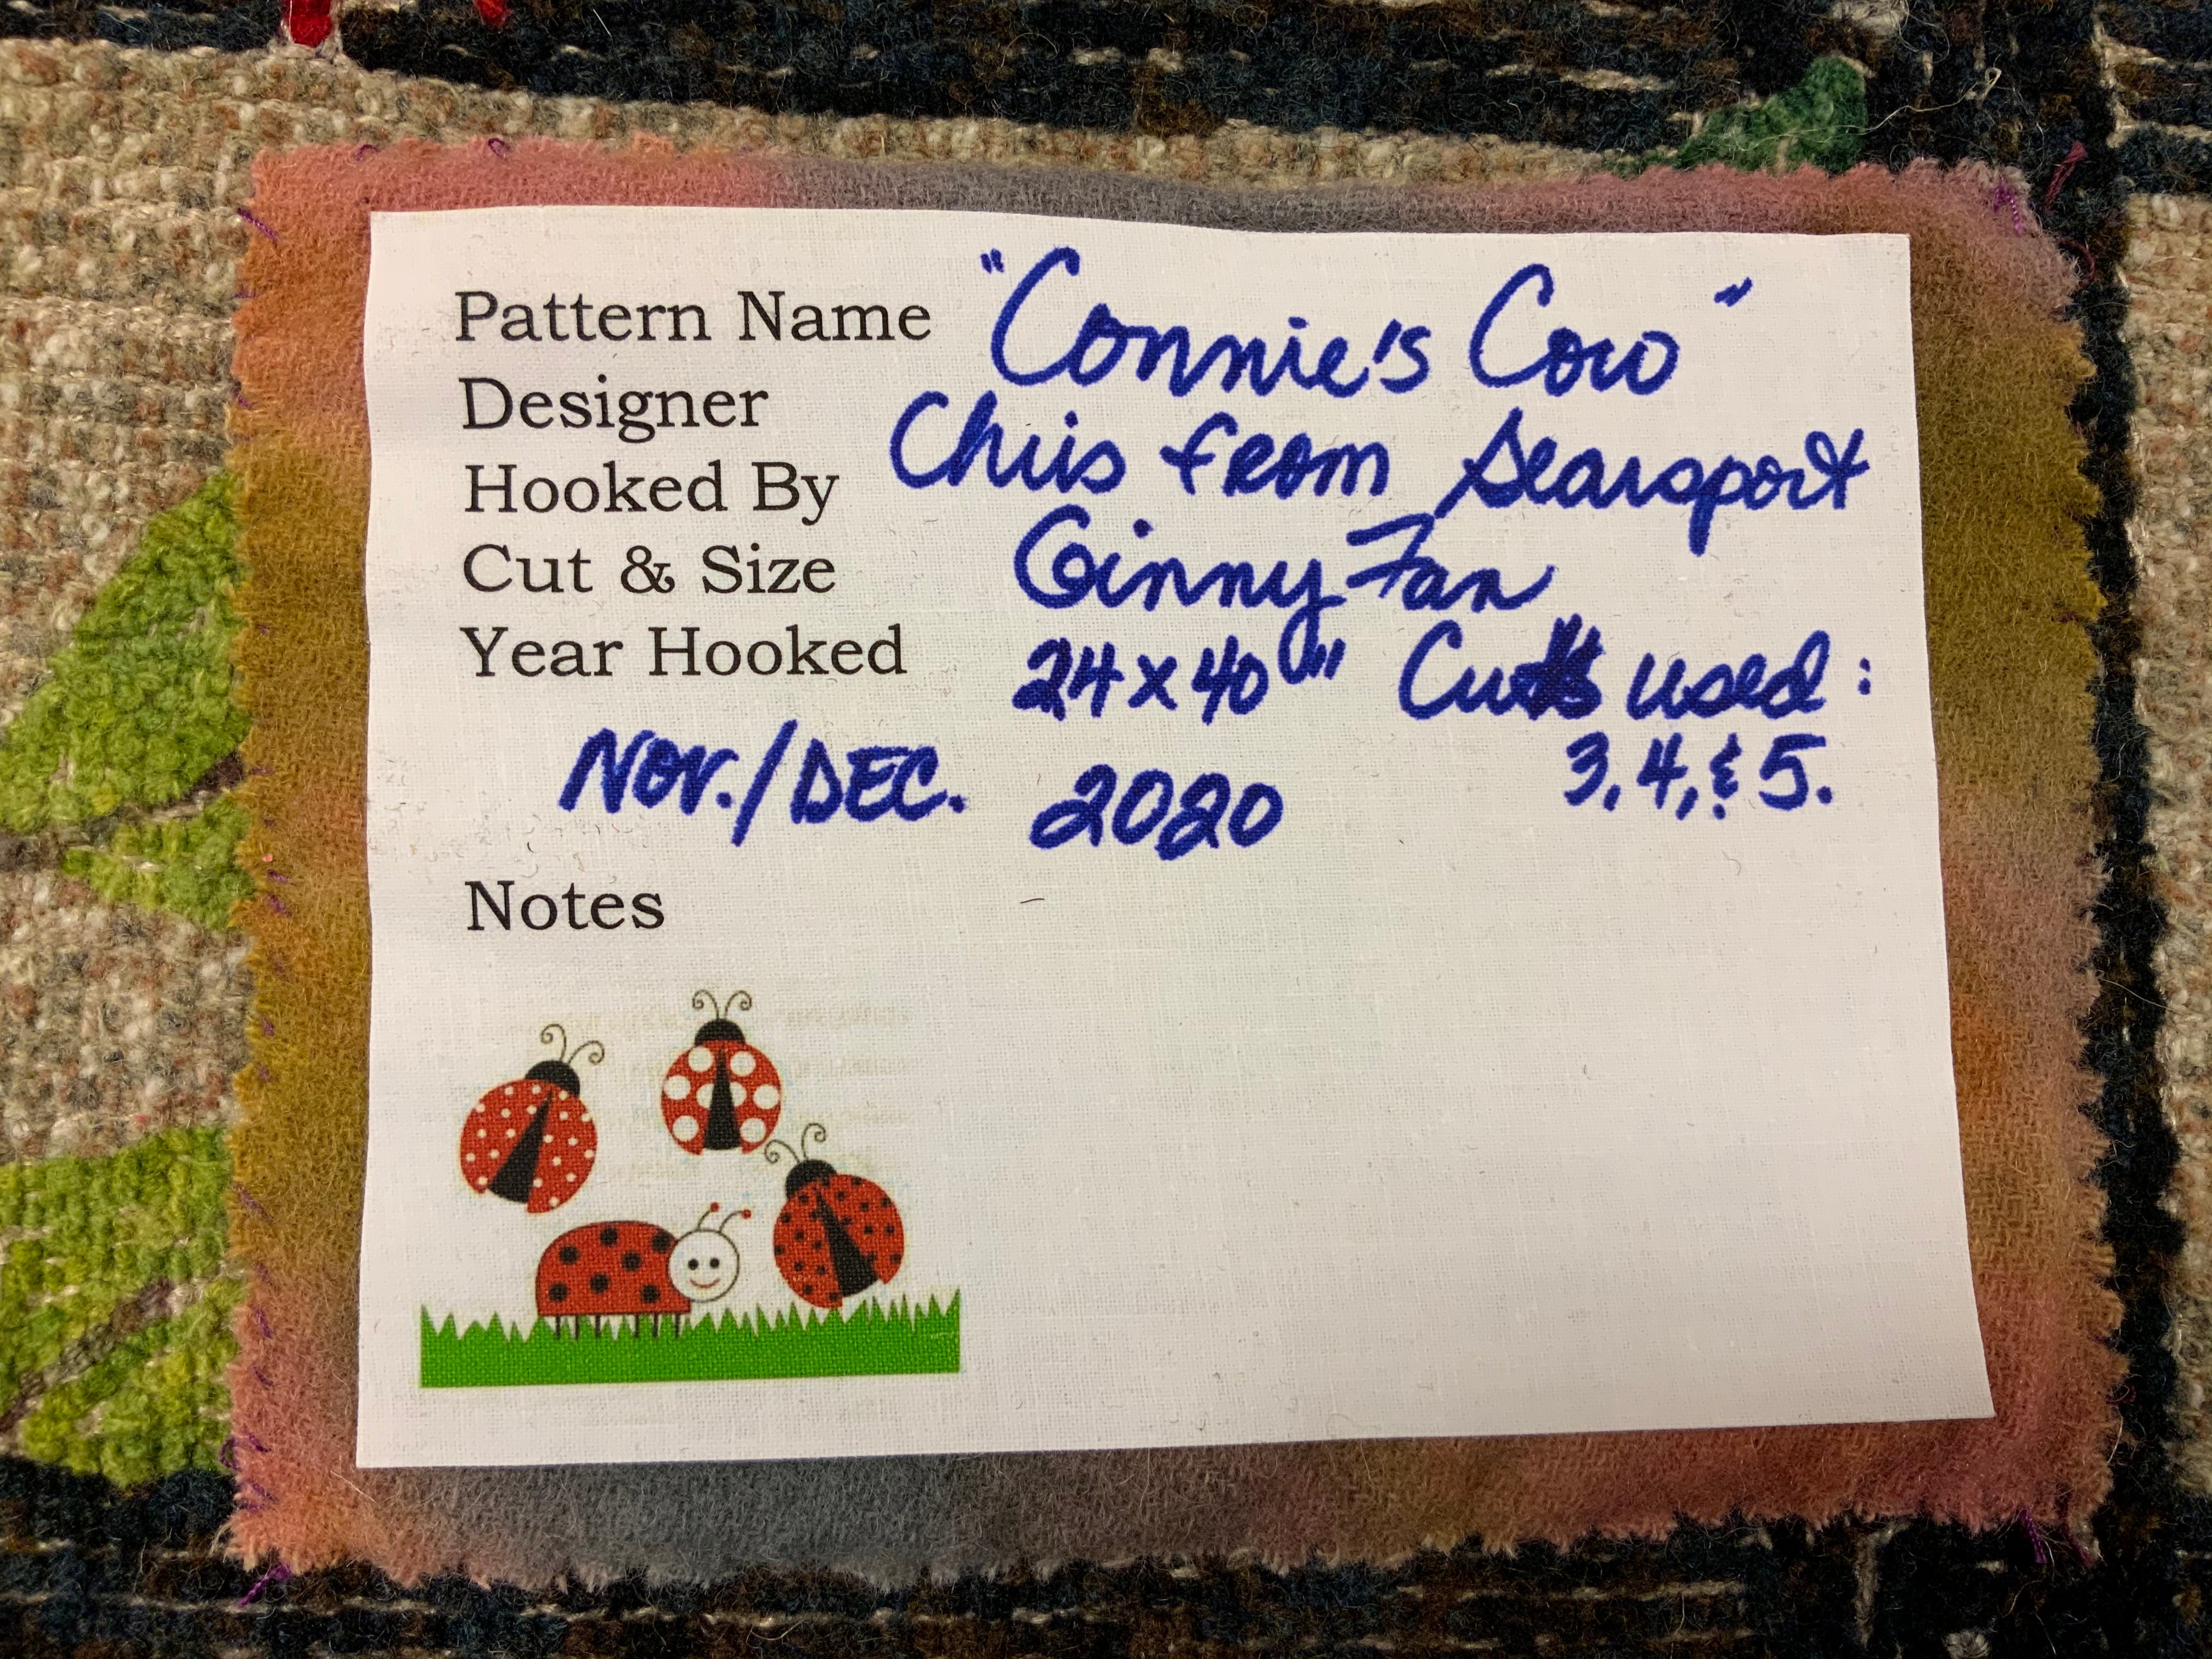 Pattern Name "Connie's Cow"
Designer Chris from Searsport
Hooked By Ginny Fan
Cut & Size 24x40" Cuts used:
3,4,& 5.
Year Hooked
Nov./DEC. 2020
Notes